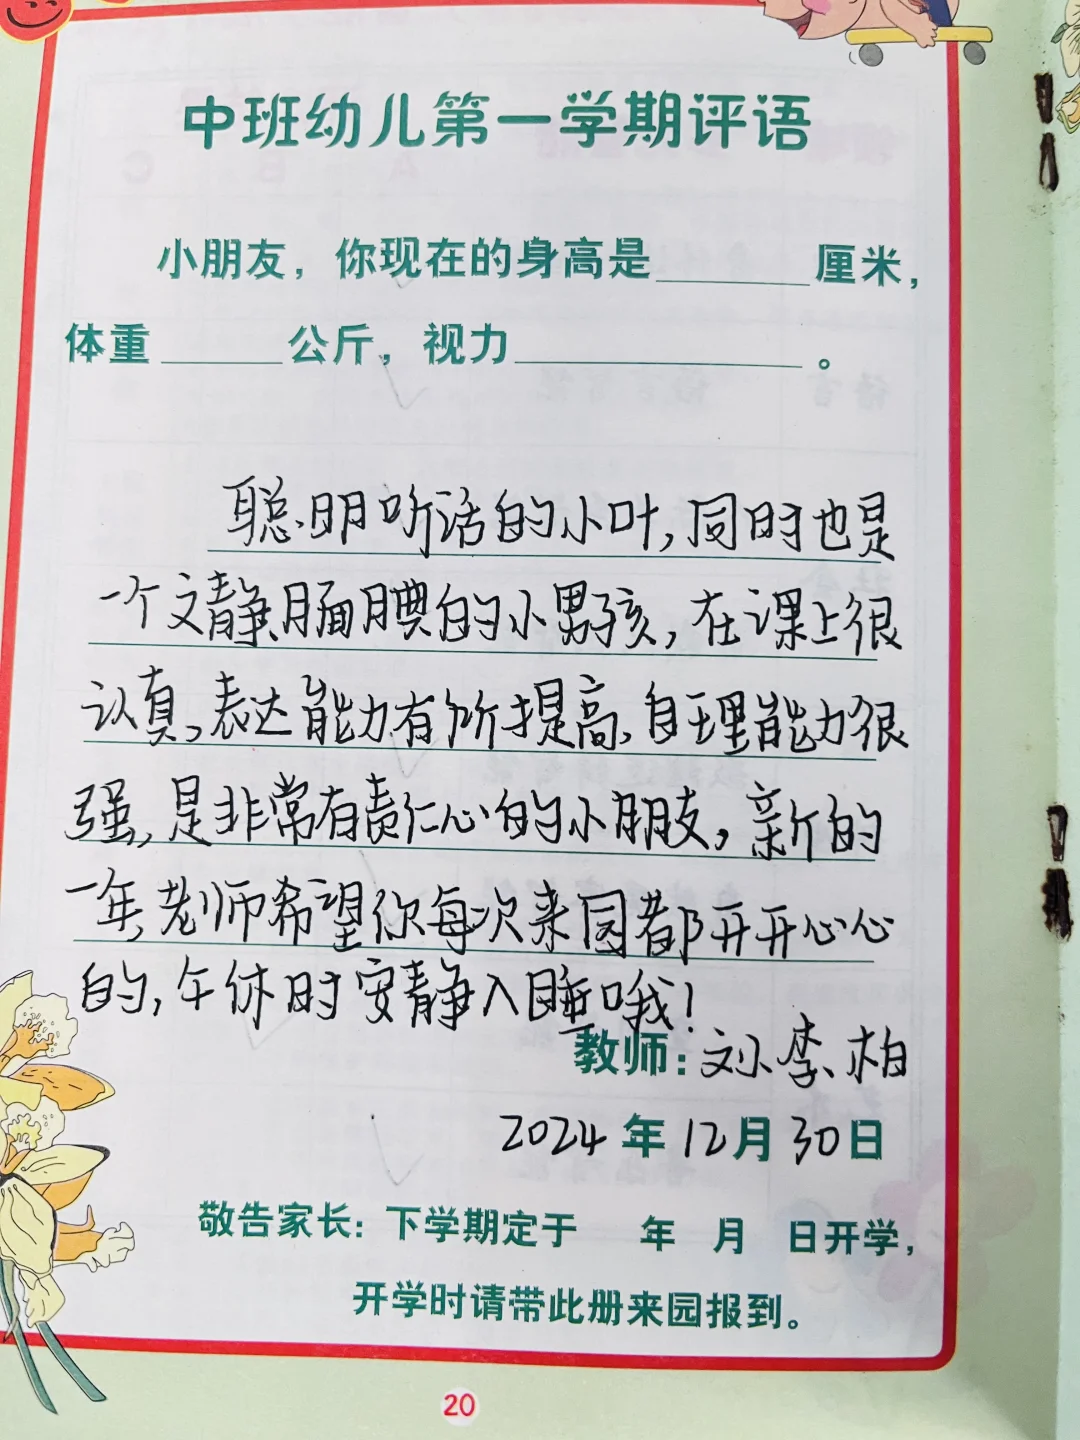 中班幼儿第一学期评语
小朋友，你现在的身高是______厘米，
体重_____公斤，视力___________。
聪明听话的小叶，同时也是
一个文静腼腆的小男孩，在课上很
认真，表达能力有所提高，自理能力很
强，是非常有责任心的小朋友，新的
一年，老师希望你每次来园都开开心心
的，午休时安静入睡哦！
教师：刘李柏
2024年12月30日
敬告家长：下学期定于 年 月 日开学，
开学时请带此册来园报到。
20